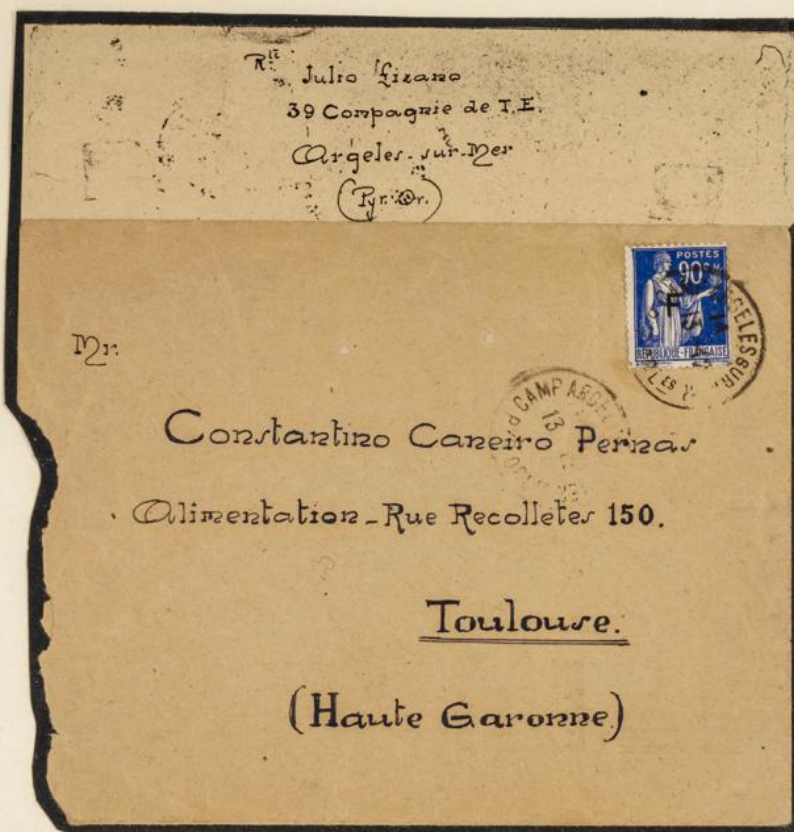 Rte Julio Lizano
39 Compagnie de T.E.
Argeles-sur-Mer
(Pyr. Or.)
POSTES
90c
F
REPUBLIQUE-FRANÇAISE
Mr.
CAMP
13
Constantino Caneiro Pernas
Alimentation-Rue Recolletes 150.
Toulouse.
(Haute Garonne)